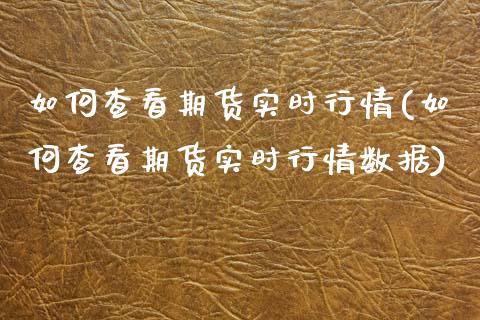 如何查看期货实时行情(如
何查看期货实时行情数据)